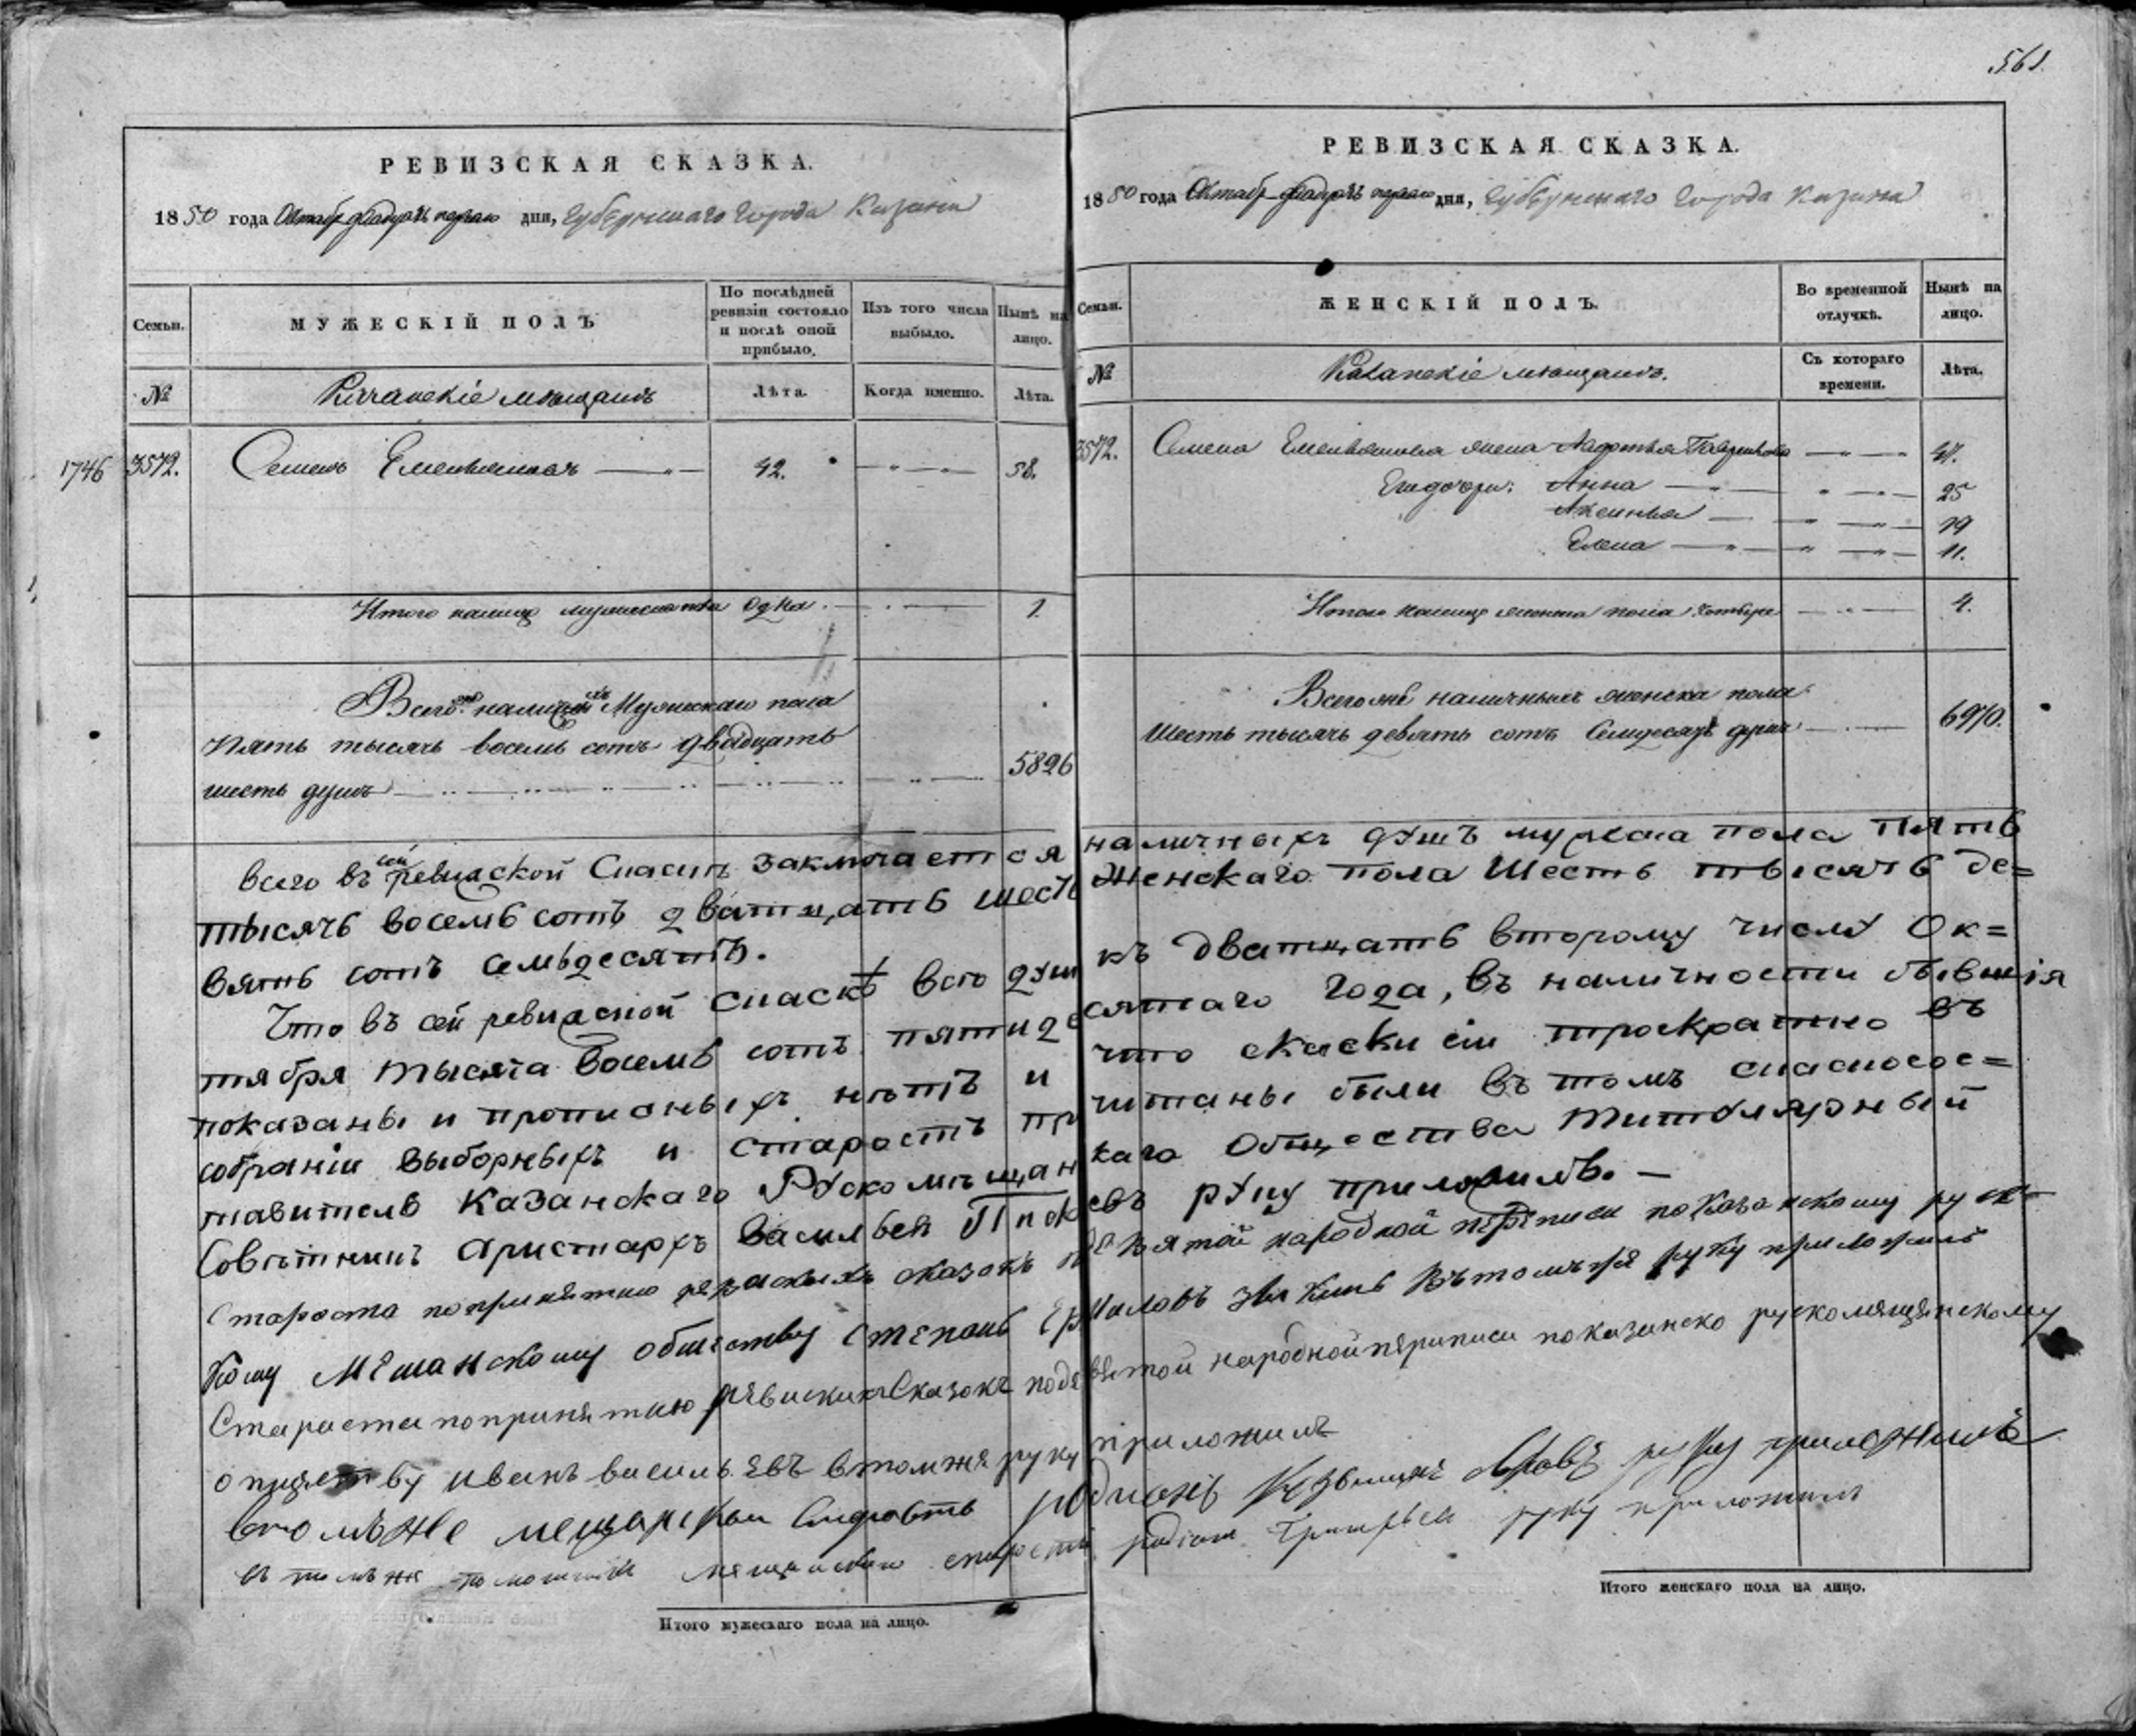 561.
РЕВИЗСКАЯ СКАЗКА.
1850 года Октябр. двадцать перваго дня, Губернскаго города Казани
Семьи.
МУЖЕСКІЙ ПОЛЪ
По послѣдней ревизіи состояло и послѣ оной прибыло.
Изъ того числа выбыло.
Нынѣ на лицо.
№
Казанскіе мѣщанъ
Лѣта.
Когда именно.
Лѣта.
1746 3572. Семенъ Емельяновъ — 42. — 58.
Итого налицо мужеска пола одна — 1.
Всего налич Мужескаго пола
пять тысячъ восемь сотъ двадцать
шесть душъ 5826
РЕВИЗСКАЯ СКАЗКА.
1850 года Октябр. двадцать перваго дня, Губернскаго города Казани
Семьи.
ЖЕНСКІЙ ПОЛЪ.
Во временной отлучкѣ.
Нынѣ на лицо.
№
Казанскіе мѣщанъ.
Съ котораго времени.
Лѣта.
3572. Семена Емельянова жена 47.
Егодочери: Анна — 25
Аксинья — 19
Елена — 11.
Итого налицо женска пола четыре — 4.
Всего же наличныхъ женска пола
Шесть тысячъ девять сотъ Семдесять душъ — 6970.
всего въ сей ревизской Скаскѣ заключается наличныхъ душъ мужска пола Пять
тысячь восемь сотъ дватцать шесть Женскаго пола Шесть тысячь де=
вять сотъ семьдесятъ.
Что въ сей ревизской скаскѣ всю душ къ дватцать второму числу Ок=
тября тысяча восемь сотъ пятидесятаго года, въ наличности бывшія
показаны и прописныхъ нѣтъ и что скаски сіи троекратно въ
собраніи выборныхъ и старостъ читаны были въ томъ
тавитель Казанскаго Рускомѣщанскаго Общества Титулярный
Совѣтникъ Аристархъ Васильевъ руку приложилъ. —
Староста попринятию ревискихъ сказокъ по девятой народной переписи поКазанскому руско
кому Мещанскому обществу Степанъ Ермиловъ вътомъже руку приложилъ
Стараста попринятию ревискихъ Сказокъ подевятой народной переписи показанско рускомещянскому
опществу иванъ васильевъ втомже руку приложилъ
втомъже мещанскои родионъ руку приложилъ
въ томъже помошникъ мещанскаго старосты радіонъ Григорьевъ руку приложилъ
Итого мужескаго пола на лицо.
Итого женскаго пола на лицо.